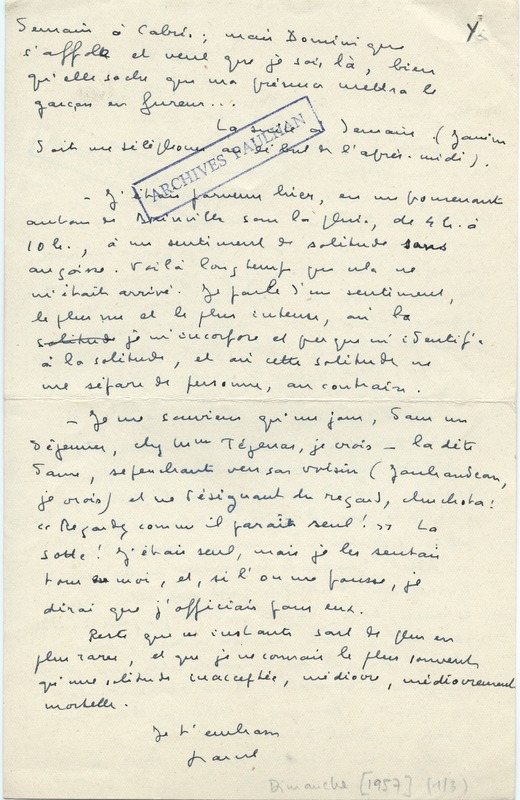 Y
demain à Cabris ; mais Dominique
s'affole et veut que je sois là, bien
qu'elle sache que ma présence mettra le
garçon en fureur...
La suite à demain. (Janine
doit me téléphoner au début de l'après-midi).
ARCHIVES PAULHAN
- J'étais parvenu hier, en me promenant
autour de Brinville sous la pluie, de 4 h. à
10 h., à un sentiment de solitude sans
angoisse. Voilà longtemps que cela ne
m'était arrivé. Je parle d'un sentiment,
le plus nu et le plus intense, où la
solitude je m'incorpore et presque m'identifie
à la solitude, et où cette solitude ne
me sépare de personne, au contraire.
- Je me souviens qu'un jour, dans un
déjeuner, chez Mme Tézenas, je crois - la dite
dame, se penchant vers son voisin (Jouhandeau,
je crois) et me désignant du regard, chuchota :
« Regardez comme il paraît seul ! » La
sotte ! J'étais seul, mais je les sentais
tous en moi, et, si l'on me pousse, je
dirai que j'officiais pour eux.
Reste que ces instants sont de plus en
plus rares, et que je ne connais le plus souvent
qu'une solitude inacceptée, médiocre, médiocrement
mortelle.
Je t'embrasse
Marcel
Dimanche [1957] (1/3)